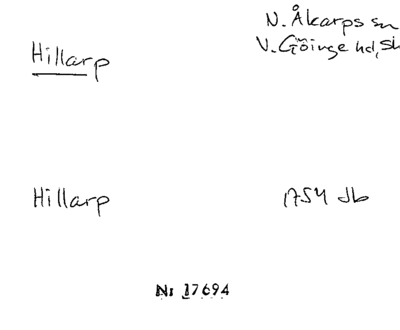 N. Åkarps sn
Hillarp
V. Göinge hd, Sk
Hillarp
1754 Jb
Nr 17694